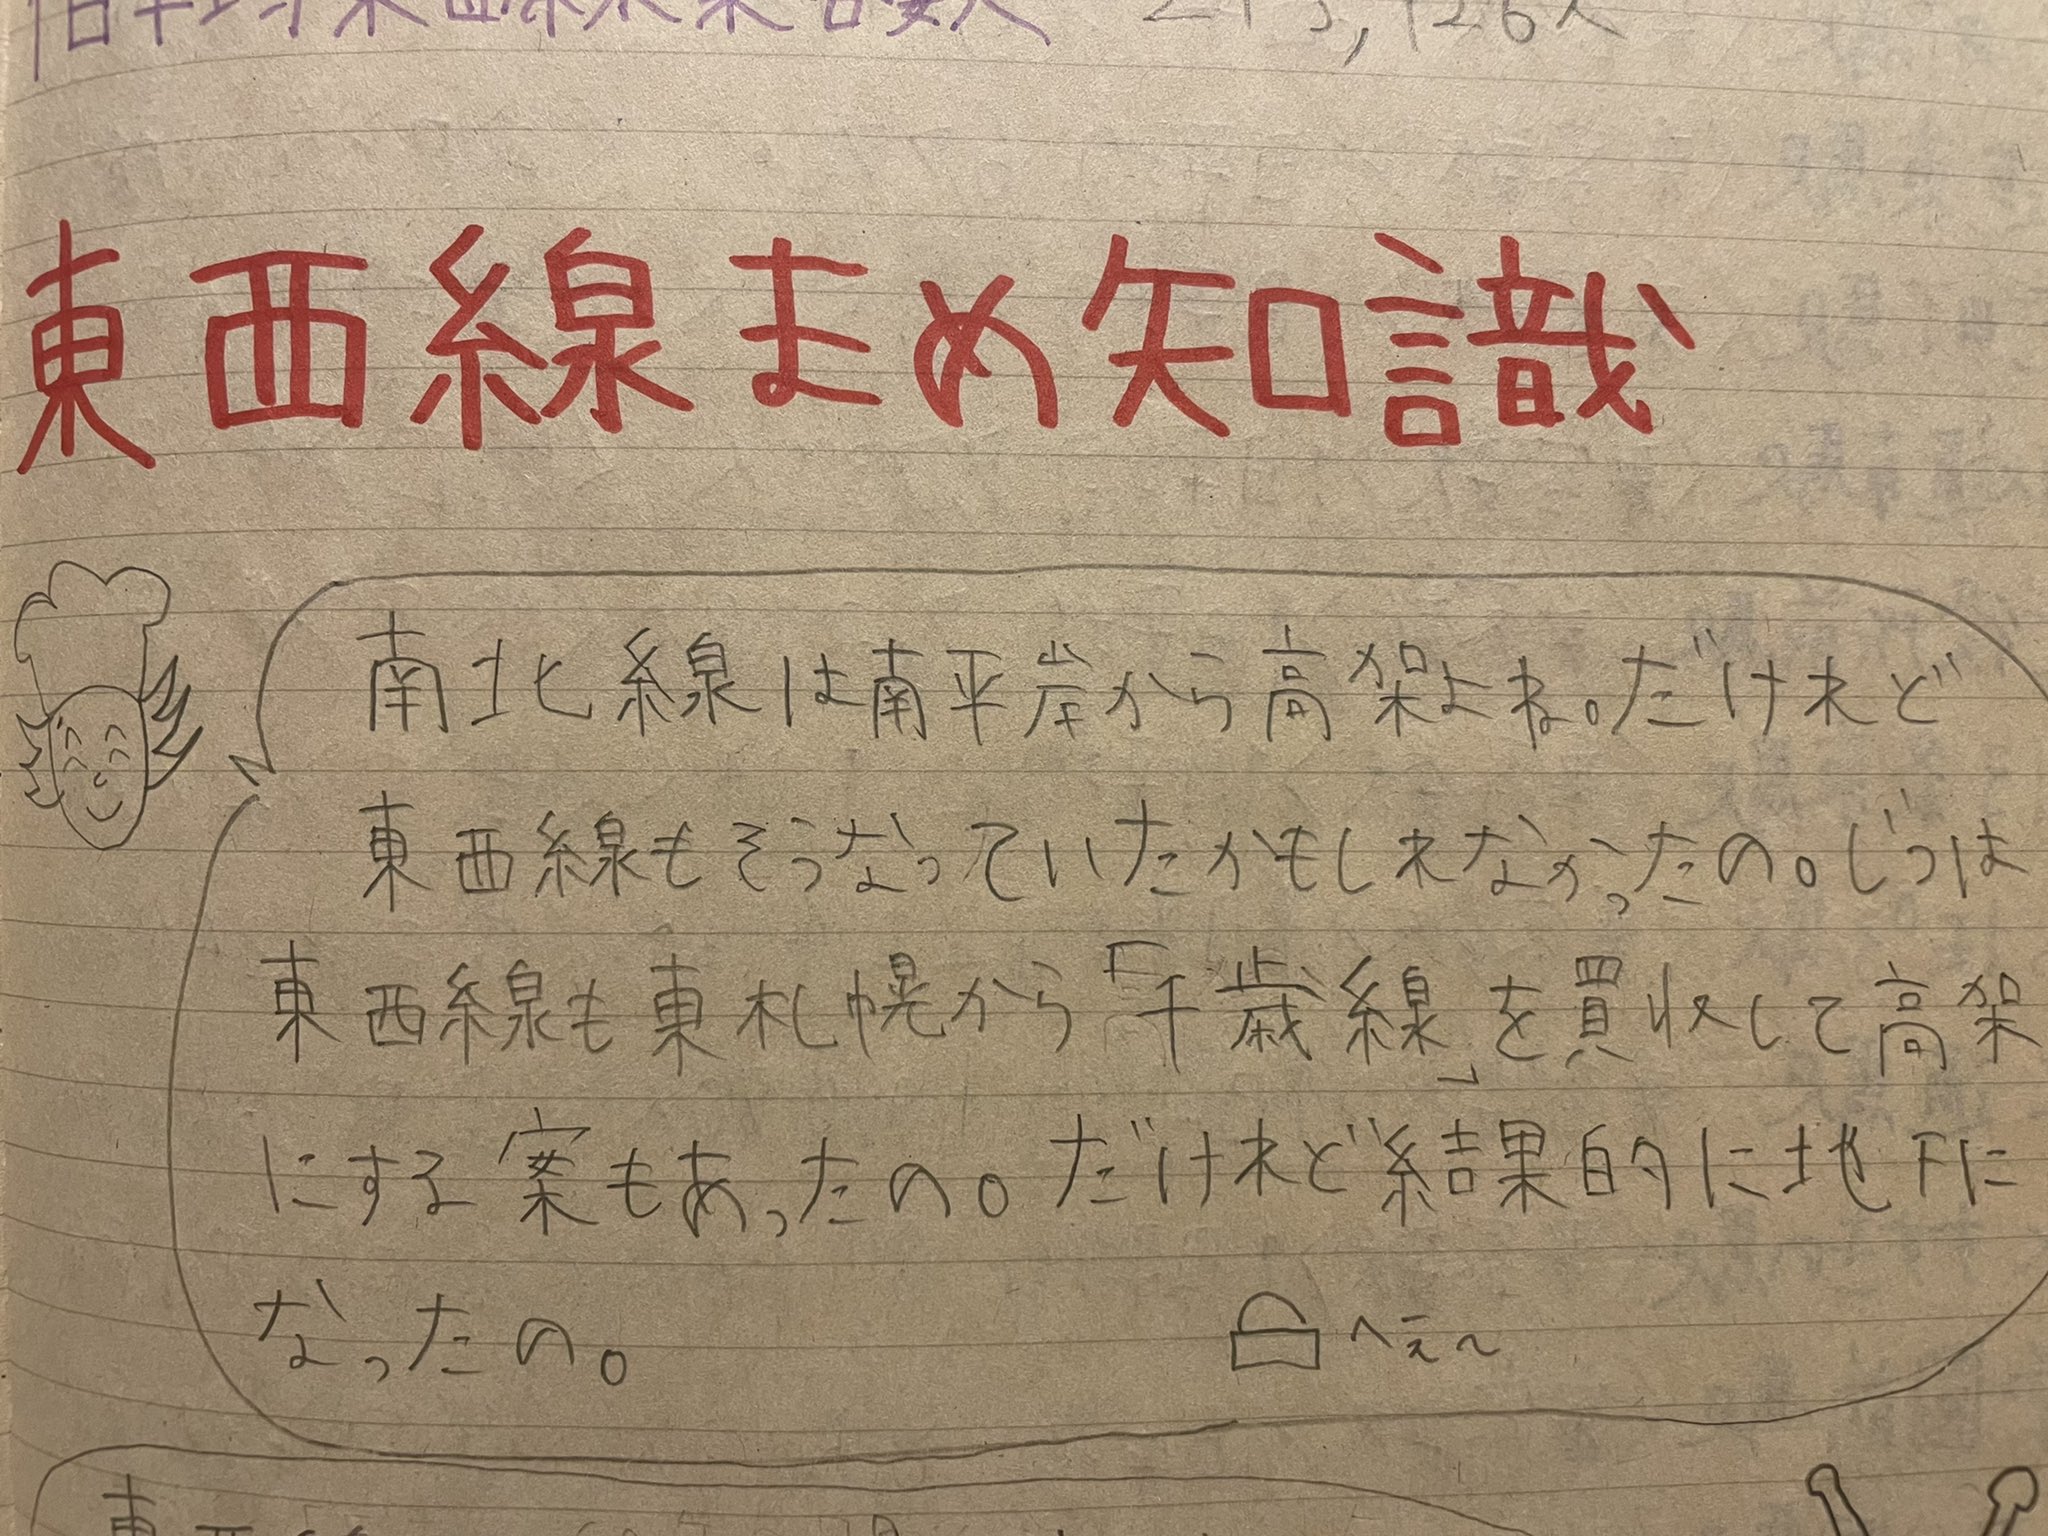 東西線乗車客数 213,126人
東西線まめ知識
南北線は南平岸から高架よね。だけれど
東西線もそうなっていたかもしれなかったの。じつは
東西線も東札幌から「千歳線」を買収して高架
にする案もあったの。だけれど結果的に地下に
なったの。
へぇ〜
東西線